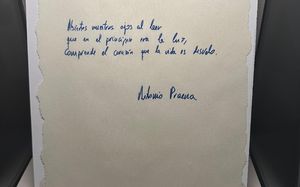 Abiertos nuestros ojos al leer
que en el principio era la luz,
comprende el corazón que la vida es desvelo.
Antonio Praena